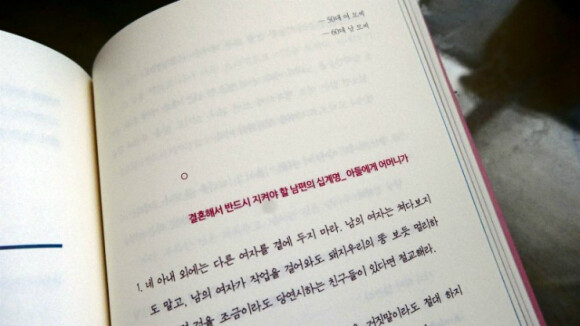 — 50대 여 모씨
— 60대 남 모씨
결혼해서 반드시 지켜야 할 남편의 십계명_ 아들에게 어머니가
1. 네 아내 외에는 다른 여자를 곁에 두지 마라. 남의 여자는 쳐다보지
도 말고, 남의 여자가 작업을 걸어와도 돼지우리의 똥 보듯 멀리하
을 조금이라도 당연시하는 친구들이 있다면 절교해라.
거짓말이라도 절대 하지